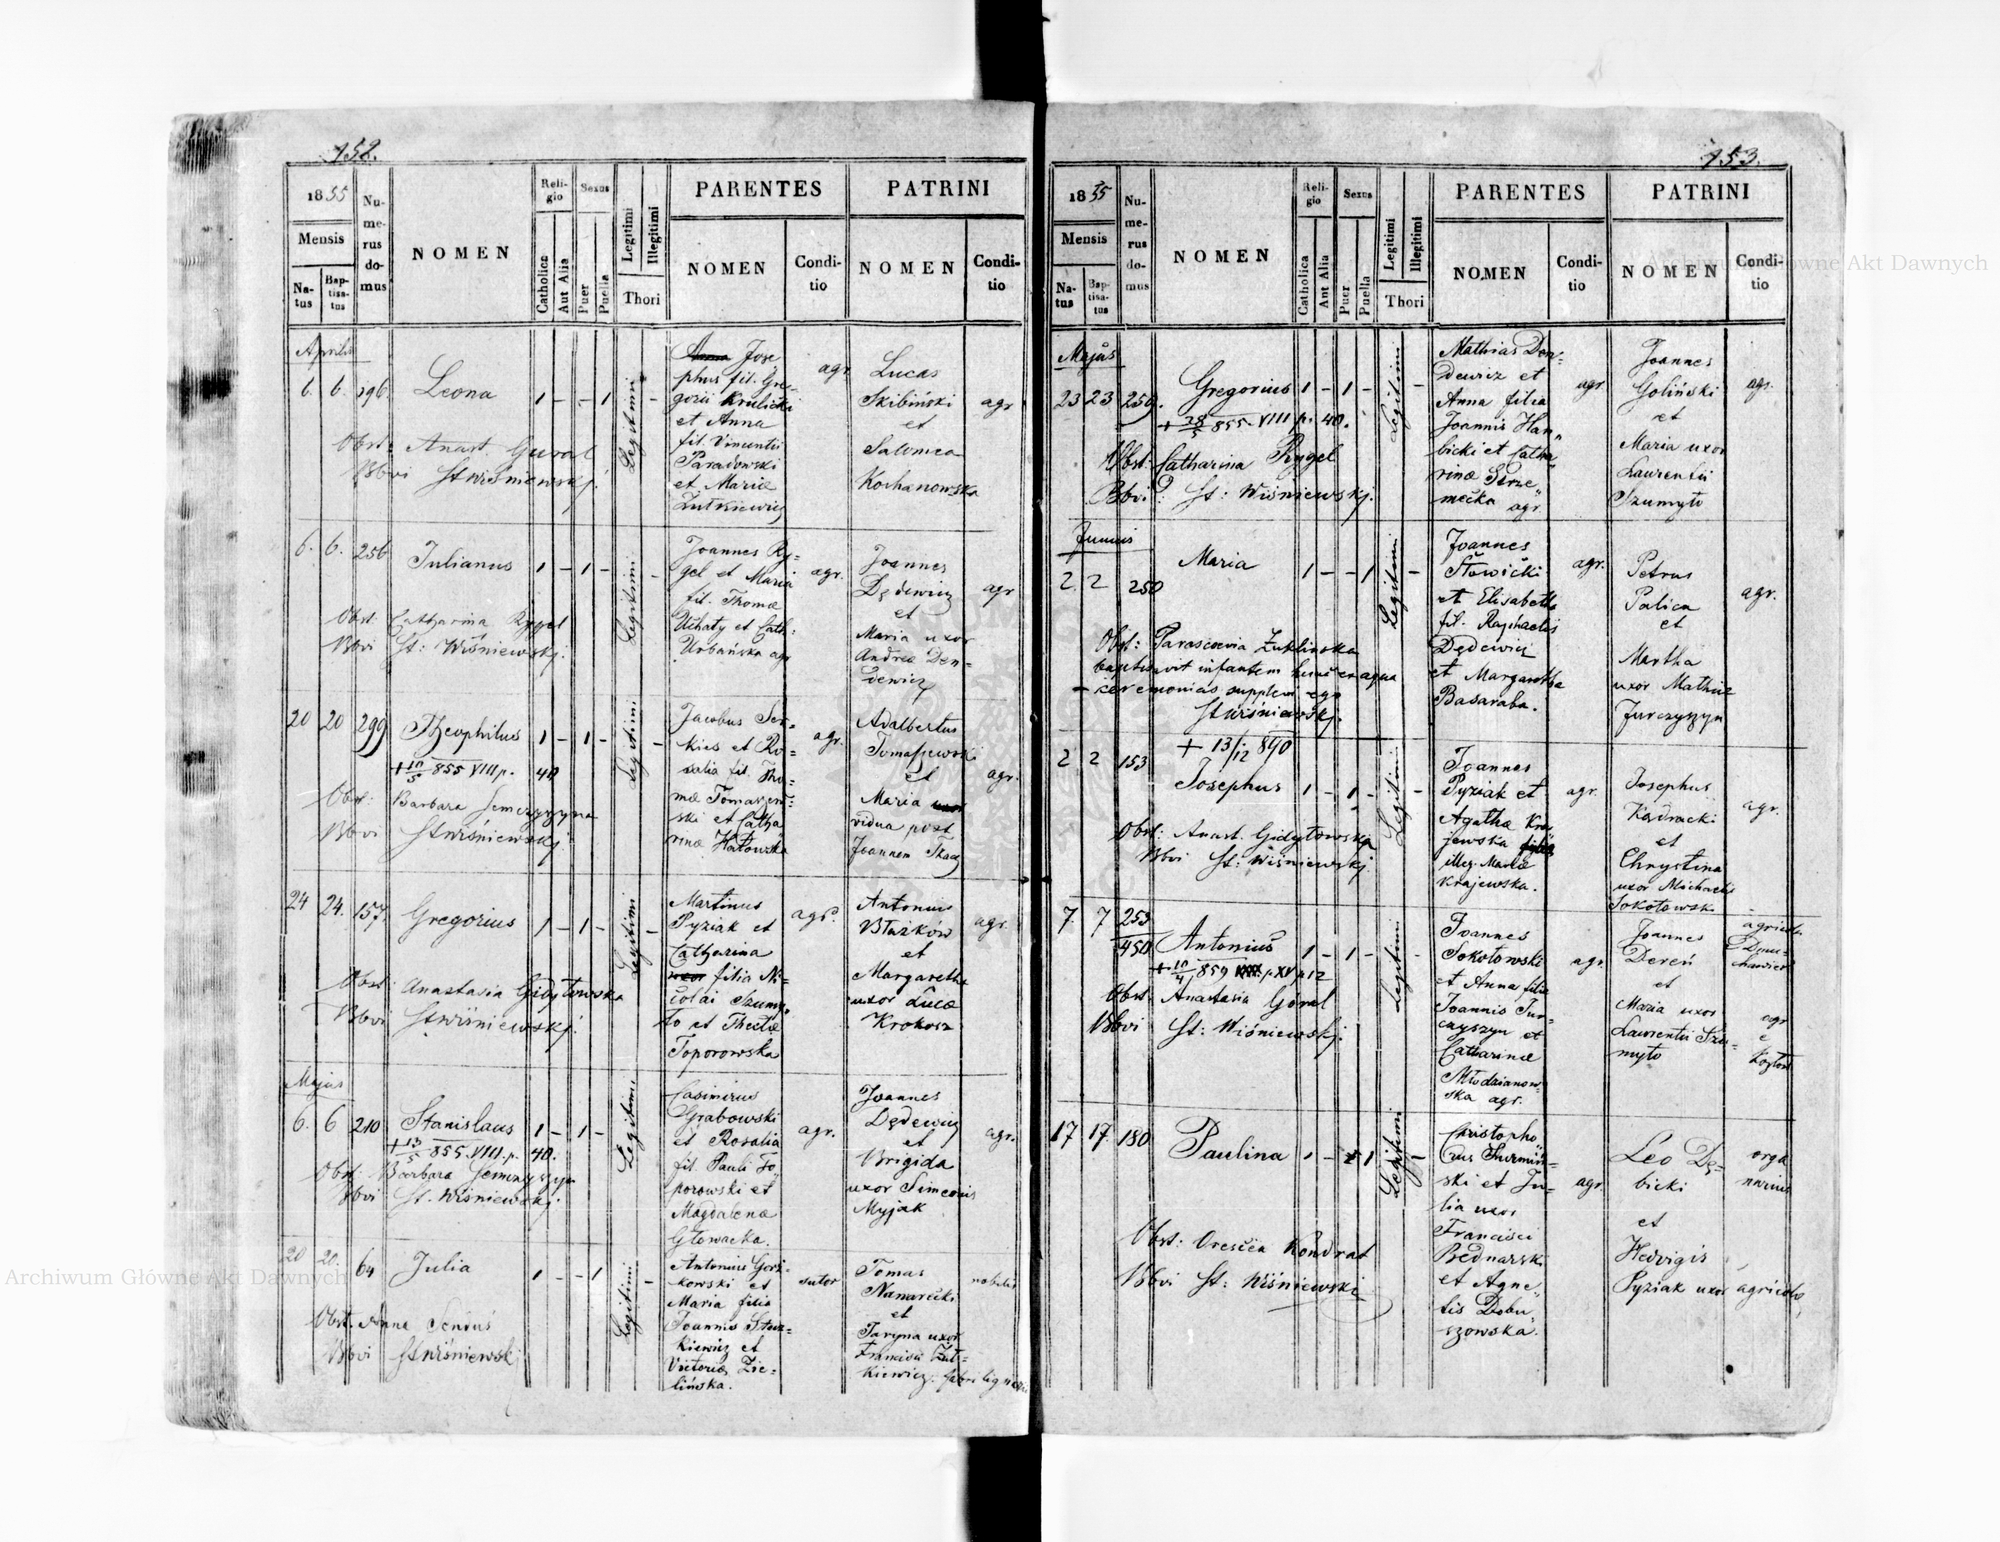 152.
1855
Mensis
Natus
Baptisatus
Numerus domus
NOMEN
Religio
Catholica
Aut Alia
Sexus
Puer
Puella
Legitimi
Illegitimi
Thori
PARENTES
NOMEN
Conditio
PATRINI
NOMEN
Conditio
Aprilis
6. 6. 196. Leona 1 - - 1 Legitimi -
Obst: Anast. Gural
Bbvi St Wiśniewskj.
Josephus fil. Gre-
gorii Krulicki
et Anna
fil. Vincentii
Paradowski
et Mariæ
Zutkiewicz
agr.
Lucas
Skibiński
et
Salomea
Kochanowska
agr
6. 6. 256 Julianus 1 - 1 - Legitimi -
Obst: Catharina Rygel
Bbvi St: Wiśniewskj.
Joannes Ry-
gel et Maria
fil. Thomæ
Uchaty et Cath:
Urbańska agr
agr.
Joannes
Dędewicz
et
Maria uxor
Andreæ Den-
dewicz
agr
20 20 299 Theophilus 1 - 1 - Legitimi -
+ 10/5 855 VIII p. 40
Obst: Barbara Semczyszyn
Bbvi St Wiśniewskj
Jacobus Ser-
kies et Ro-
salia fil. Tho-
mæ Tomaszew-
ski et Catha
rinæ Hałowska
agr.
Adalbertus
Tomaszewski
et
Maria
vidua post
Joannem Tkacz
agr.
24 24. 157. Gregorius 1 - 1 - Legitimi -
Obst: Anastasia Gidytowska
Bbvi St Wiśniewskj.
Martinus
Pyziak et
Catharina
filia Ni-
colai Szumy-
to et Theclæ
Toporowska
agr.
Antonius
Błażkow
et
Margaretha
uxor Lucæ
Krokosz
agr.
Majus
6. 6 210 Stanislaus 1 - 1 - Legitimi
+ 13/5 855. VIII. p. 40.
Obst: Barbara Semczyszyn
Bbvi St. Wiśniewskj.
Casimirus
Grabowski
et Rosalia
fil Pauli To-
porowski et
Magdalenæ
Głowacka.
agr.
Joannes
Dędewicz
et
Brigida
uxor Simeonis
Myjak
agr.
20 20. 64 Julia 1 - - 1 Legitimi -
Obst. Anna Senous
Bbvi St Wiśniewski
Antonius Gorz-
kowski et
Maria filia
Joannis Stan-
kiewicz et
Victoriæ Zie-
lińska.
sutor
Tomas
Nanarecki
et
Taryna uxor
Francisci Zut-
kiewicz. fabri lignarii
nobilis
153.
1855
Mensis
Natus
Baptisatus
Numerus domus
NOMEN
Religio
Catholica
Aut Alia
Sexus
Puer
Puella
Legitimi
Illegitimi
Thori
PARENTES
NOMEN
Conditio
PATRINI
NOMEN
Conditio
Majus
23 23 259. Gregorius 1 - 1 - Legitimi -
+ 28/5 855. VIII p. 40.
Obst: Catharina Rygel
Bbvi: St: Wiśniewskj.
Mathias Den-
dewicz et
Anna filia
Joannis Han-
bicki et Catha-
rinæ Strze-
mecka agr
agr.
Joannes
Goliński
et
Maria uxor
Laurentii
Szumyto
agr.
Junius
2 2 250 Maria 1 - - 1 Legitimi -
Obst: Parascevia Zuklinska
baptisavit infantem hunc ex aqua
- ceremonias supplevi ego
St Wiśniewskj.
Joannes
Słowicki
et Elisabetha
fil: Raphaelis
Dędewicz
et Margaretha
Basaraba.
agr.
Petrus
Palica
et
Martha
uxor Mathiæ
Jurczyszyn
agr.
2 2 153 + 13/12 890
Josephus 1 - 1 - Legitimi -
Obst: Anast. Gidytowska
Bbvi St: Wiśniewskj.
Joannes
Pyziak et
Agatha Kra-
jewska
illeg. Mariæ
Krajewska.
agr.
Josephus
Kądracki
et
Chrystina
uxor Michaelis
Sokołowski
agr.
7. 7 253
450 Antonius 1 - 1 - Legitimi -
+ 10/4 859 p. XV. n 12
Obst: Anastasia Góral
Bbvi St: Wiśniewskj.
Joannes
Sokołowski
et Anna filia
Joannis Jur-
czyszyn et
Catharinæ
Młodzianow-
ska agr.
agr.
Joannes
Dereń
et
Maria uxor
Laurentii Szu-
myto
agricola
agr
e
17 17. 180 Paulina 1 - 1 Legitimi -
Obst: Kondrat
Bbvi St: Wiśniewski
Christopho-
rus Surmiń-
ski et Ju-
lia uxor
Francisci
Bednarski
et Agne-
tis Dobu
szowska.
agr.
Leo Dę-
bicki
et
Hedvigis
Pyziak uxor agricolæ
orga
narius
Archiwum Główne Akt Dawnych
Archiwum Główne Akt Dawnych